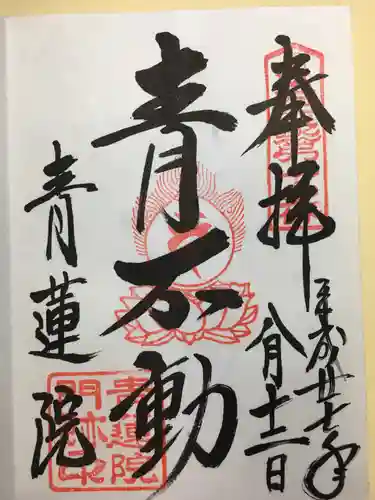 奉拝
平成廿七年
八月十三日
青不動
青蓮院
青蓮院
門跡印